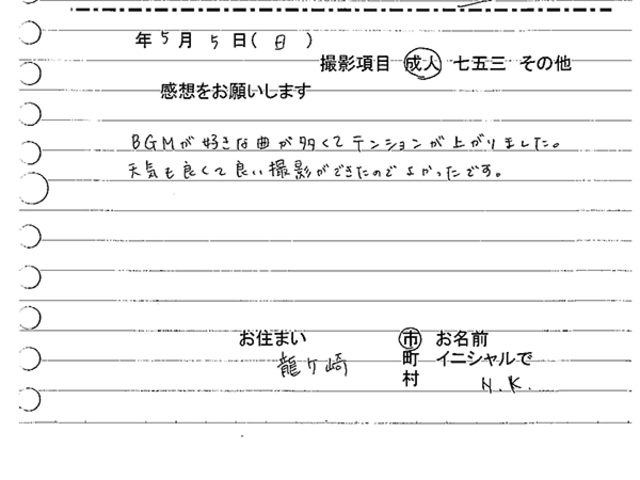 年 5 月 5 日( 日 )
撮影項目 成人 七五三 その他
感想をお願いします
BGMが好きな曲が多くてテンションが上がりました。
天気も良くて良い撮影ができたのでよかったです。
お住まい 市 お名前
龍ケ崎 町 イニシャルで
村 N.K.